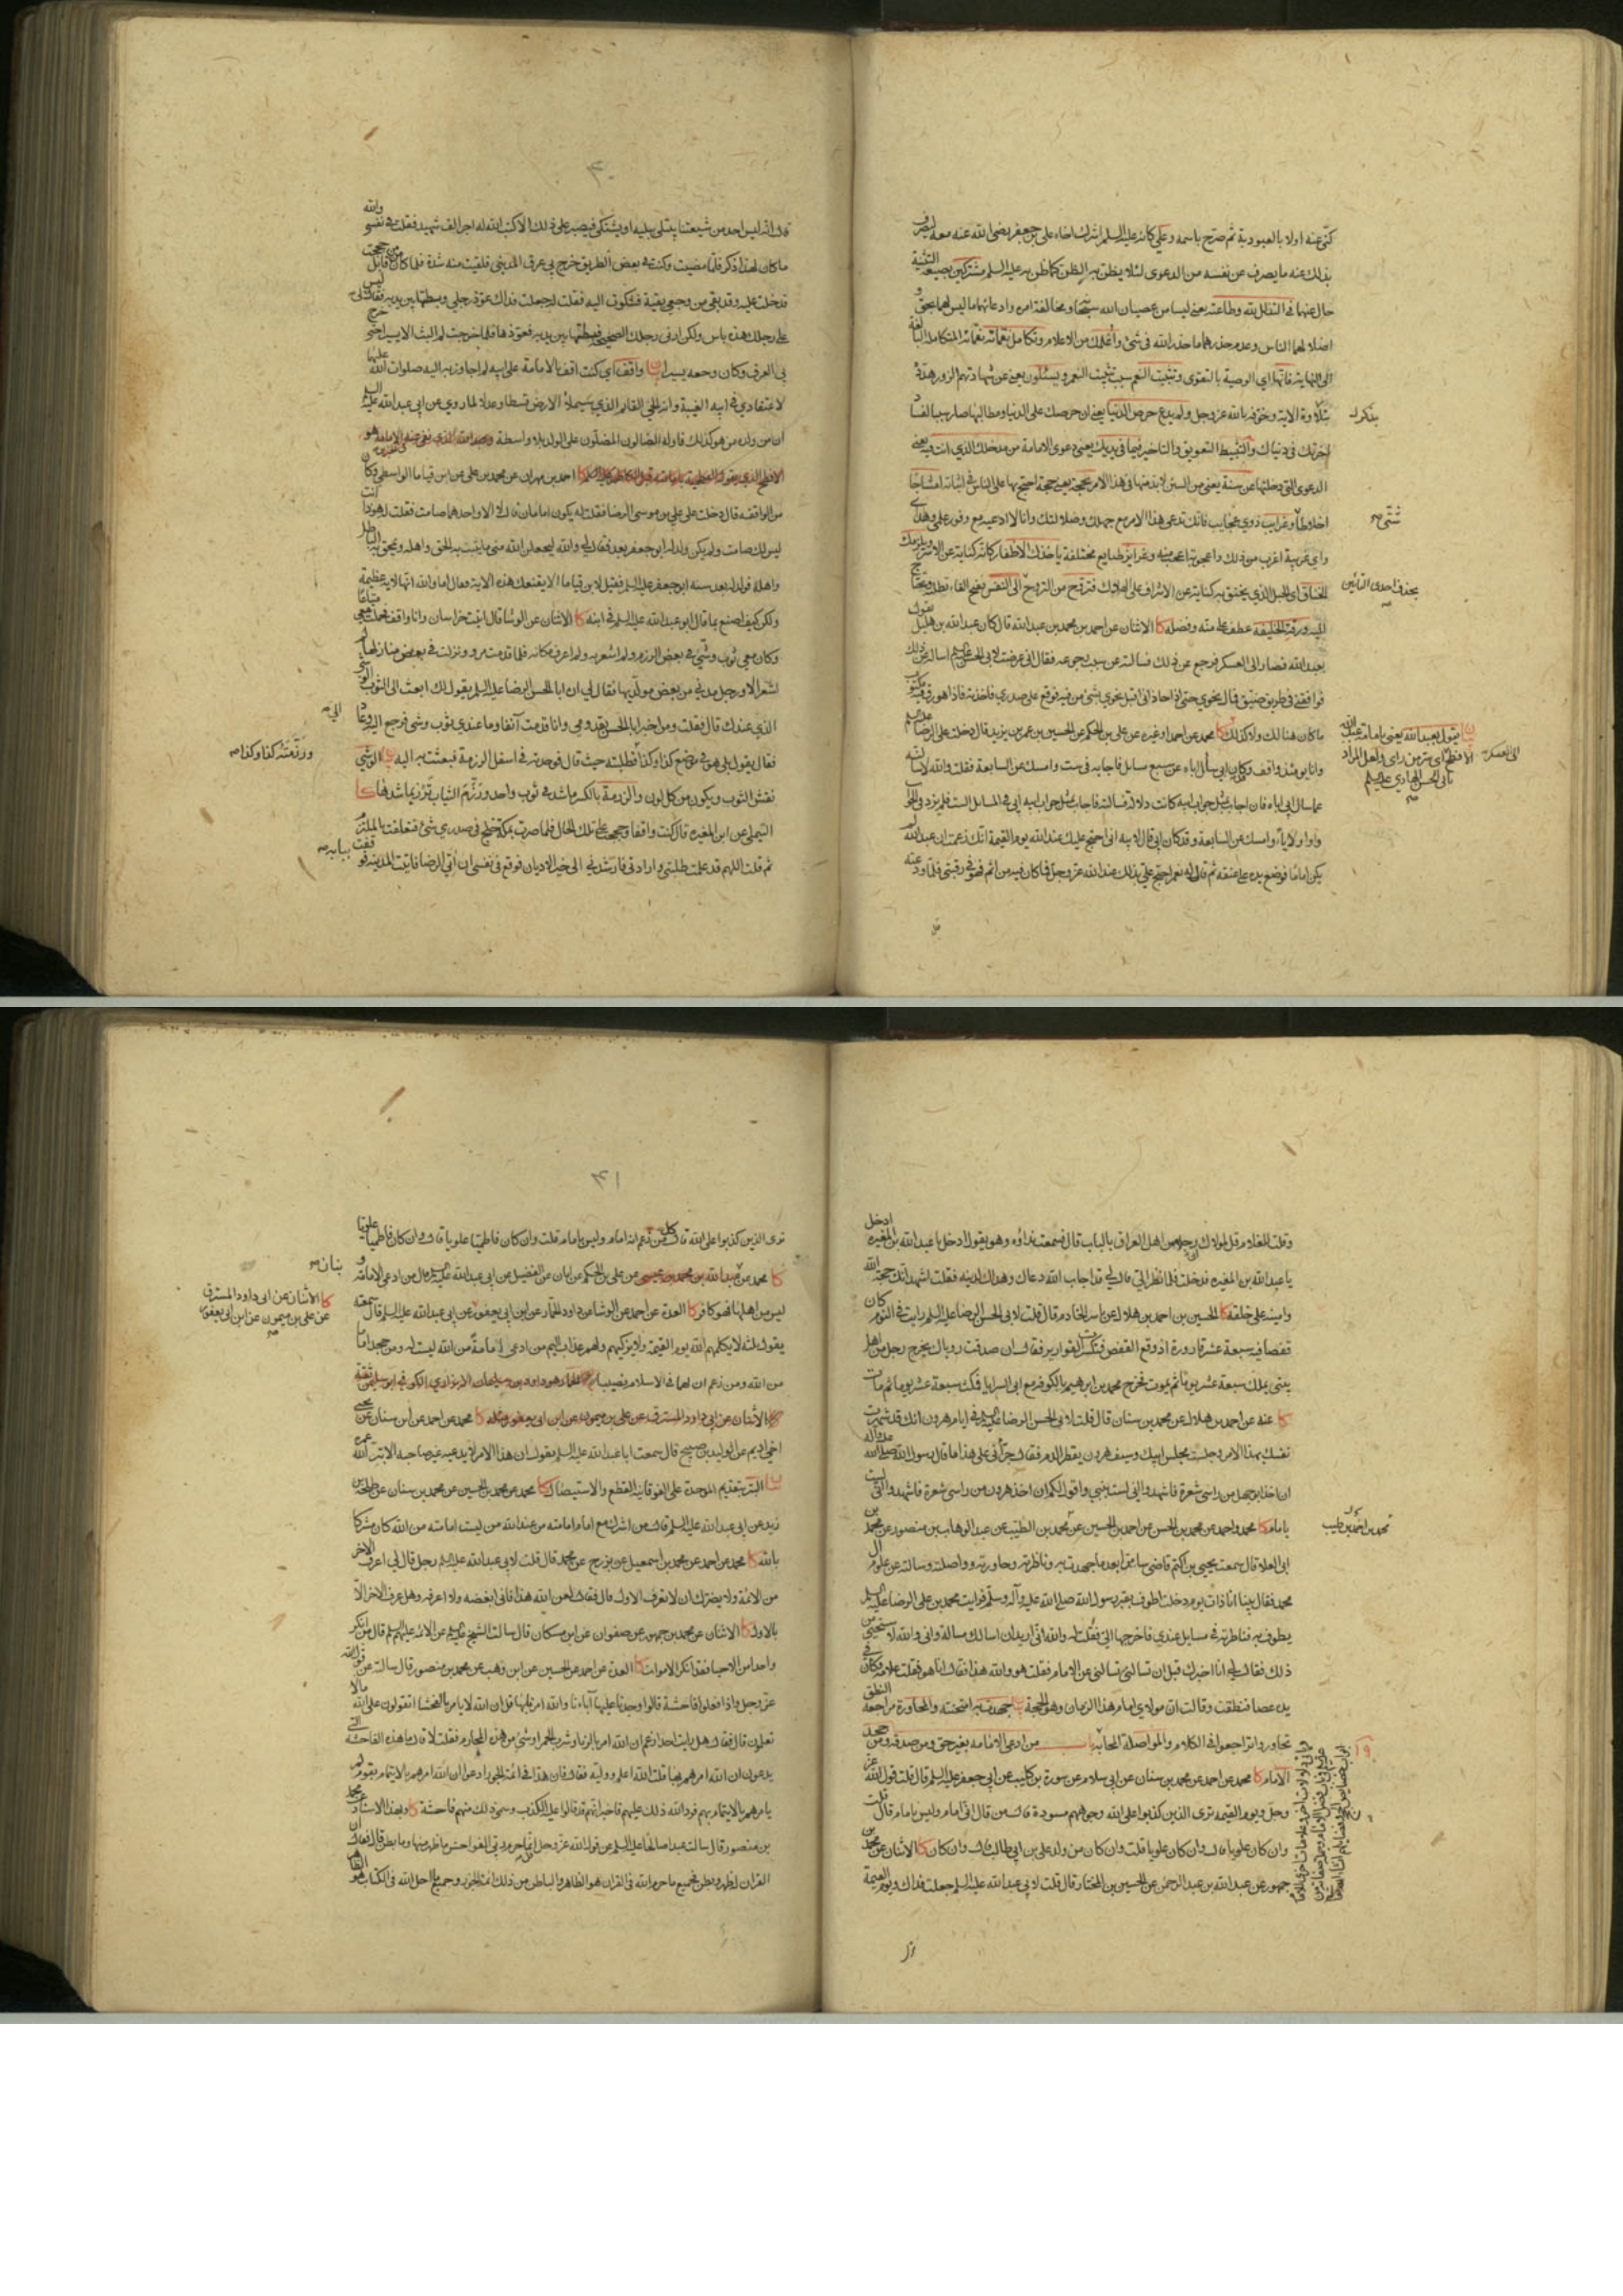 كنى عنه اولا بالعبودية ثم صرح باسمه وعلى كانه عليه السلم اشرك اخاه علي بن جعفر رضي الله عنه معه ليصرف
بذلك عنه ما يصرف عن نفسه من الدعوى لئلا يظن به الظن كما ظن به عليه السلم مشتركين بصيغة التثنية
حال عنهما في التذلل لله وطاعته يعني ليسا من عصيان الله سبحانه ومخالفة امره وادعائهما ما ليس لهما بحق و
اضلالهما الناس وعدم حذرهما ما حذر الله في شئ واعلمك من الاعلام وتكامل نقماته نقماته المتكاملة البالغة
الى النهاية فانها اي الوصية بالتقوى وتثبيت النعم سبب تثبيت النعم ويسئلون يعني عن شهادتهم الزور هذه
بتلاوة الاية وخوفه بالله عز وجل ولم يدع حرص الدنيا يعني ان حرصك على الدنيا ومطالبها صار سببا لفساد
اخرتك في دنياك والتثبيط التعويق والتاخير فيما في يديك يعني دعوى الامامة من مدخلك الذي انت فيه يعني
الدعوى التي دخلتها عن سنة يعني من السنن لا بد منها في هذا الامر بحجة يعني حجة احتج بها على الناس في اثباته امشاجا
اخلاطا وغرايب ذوي عجايب فانك تدعي هذا الامر مع جهلك وضلالتك وانا لا ادعيه مع وفور علمي وهداي
واي غريبة اغرب من ذلك واعجوبة اعجب منه وغرايز طبايع مختلفة ياخذك الاظفار كانه كناية عن الاسر ويلزمك
الخناق اي الحبل الذي يختنق به كناية عن الاشراف على الهلاك فتروح من التروح الى النفس بفتح الفاء تطلبه وتحتاج
اليه ورقة الخليفة عطف على منه وفضله كا الاثنان عن احمد بن محمد بن عبدالله قال كان عبدالله بن هليل يقول
بعبدالله فصار الى العسكر فرجع عن ذلك فسالته عن سبب رجوعه فقال اني عرضت لابي الحسن عليه السلم اساله عن ذلك
فوافقني في طريق ضيق فمال نحوي حتى اذا حاذاني اقبل نحوي بشئ من فيه فوقع على صدري فاخذته فاذا هو رق فيه مكتوب
ما كان هنالك ولا كذلك كا محمد عن احمد او غيره عن علي بن الحكم عن الحسين بن عمر بن يزيد قال دخلت على الرضا عليه السلم
وانا يومئذ واقف وكان ابي سأل اباه عن سبع مسايل فاجابه في ست وامسك عن السابعة فقلت والله لاسالنه
عما سال ابي اباه فان اجاب بمثل جواب ابيه كانت دلالة فسالته فاجاب بمثل جواب ابيه ابي في المسايل الست فلم يزد في الجواب
واوا ولا ياء وامسك عن السابعة وقد كان ابي قال لابيه اني احتج عليك عند الله يوم القيمة انك زعمت ان عبدالله لم
يكن اماما فوضع يده على عنقه ثم قال له نعم احتج علي بذلك عند الله عز وجل فما كان فيه من اثم فهو في رقبتي فلما ودعته
بذكرك
شتى
بحذف احدى التائين
ن يقول بعبدالله يعني بامامة عبدالله
الافطح
اي سر من راى ولعل المراد
بابي الحسن الهادي عليه السلم
الى العسكر
٤٠
قال انه ليس احد من شيعتنا يبتلى ببلية او يشتكي فيصبر على ذلك الا كتب الله له اجر الف شهيد فقلت في نفسي والله
ما كان لهذا ذكر فلما مضيت وكنت في بعض الطريق خرج بي عرق المديني فلقيت منه شدة فلما كان من قابل حججت
فدخلت عليه وقد بقي من وجعي بقية فشكوت اليه فقلت له جعلت فداك عوذ رجلي وبسطتها بين يديه فقال لي ليس
على رجلك هذه باس ولكن ارني رجلك الصحيحة فبسطتها بين يديه فعوذها فلما خرجت لم البث الا يسيرا حتى خرج
بي العرق وكان وجعه يسيرا ن واقف اي كنت اقف بالامامة على ابيه لم اجاوز به اليه صلوات الله عليهما
لاعتقادي في ابيه الغيبة وانه الحي القائم الذي سيملأ الارض قسطا وعدلا لما روي عن ابي عبدالله عليه السلم
ان من ولده من هو كذلك فاوله الضالون المضلون على الولد بلا واسطة
احمد بن مهران عن محمد بن علي عن ابن قياما الواسطي وكان
من الواقفة قال دخلت على علي بن موسى الرضا فقلت له يكون امامان قال لا الا واحدهما صامت فقلت له هوذا انت
ليس لك صامت ولم يكن ولد له ابو جعفر بعد فقال لي والله ليجعلن الله مني ما يثبت به الحق واهله ويمحق به الباطل
واهله فولد له بعد سنة ابو جعفر عليه السلم فقيل لابن قياما الا يقنعك هذه الاية فقال اما والله انها لاية عظيمة
ولكن كيف اصنع بما قال ابو عبدالله عليه السلم في ابنه كا الاثنان عن الوشا قال اتيت خراسان وانا واقف فحملت معي متاعا
وكان معي ثوب وشي في بعض الرزم ولم اشعر به ولم اعرف مكانه فلما قدمت مرو ونزلت في بعض منازلها لم
اشعر الا ورجل مدني من بعض مولديها فقال لي ان ابا الحسن الرضا عليه السلم يقول لك ابعث الي الثوب الوشي
الذي عندك قال فقلت ومن اخبر ابا الحسن بقدومي وانا قدمت آنفا وما عندي ثوب وشي فرجع اليه وعاد
فقال يقول بلى هو في موضع كذا وكذا فطلبته حيث قال فوجدته في اسفل الرزمة فبعثت به اليه ن الوشي
نقش الثوب ويكون من كل لون والرزمة بالكسر ما شد في ثوب واحد ورزم الثياب ترزيما شدها كا
التيملي عن ابن المغيرة قال كنت واقفا وحججت على تلك الحال فلما صرت بمكة خلج في صدري شئ فتعلقت بالملتزم
ثم قلت اللهم قد علمت طلبتي وارادتي فارشدني الى خير الاديان فوقع في نفسي ان اتي الرضا فاتيت المدينة فوقفت
الي
ورزمته كذا وكذا
ببابه
وقلت للغلام قل لمولاك رجل من اهل العراق بالباب قال فسمعت نداؤه وهو يقول ادخل يا عبدالله بن المغيره ادخل
يا عبدالله بن المغيره فدخلت فلما نظر الي قال لي قد اجاب الله دعاك وهداك لدينه فقلت اشهد انك حجة الله
وامينه على خلقه كا الحسين بن احمد بن هلال عن ياسر الخادم قال قلت لابي الحسن الرضا عليه السلم رايت في النوم كان
قفصا فيه سبعة عشر قارورة اذ وقع القفص فتكسرت القوارير فقال ان صدقت رؤياك يخرج رجل من اهل
بيتي يملك سبعة عشر يوما ثم يموت فخرج محمد بن ابرهيم بالكوفة مع ابي السرايا فمكث سبعة عشر يوما ثم مات
كا عنه عن احمد بن هلال عن محمد بن سنان قال قلت لابي الحسن الرضا عليه السلم في ايام هرون انك قد شهرت
نفسك بهذا الامر وجلست مجلس ابيك وسيف هرون يقطر الدم فقال جرأني على هذا ما قال رسول الله صلى الله عليه وآله
ان اخذ ابو جهل من راسي شعرة فاشهدوا اني لست بنبي واقول لكم ان اخذ هرون من راسي شعرة فاشهدوا اني لست
بامام كا محمد واحمد عن محمد بن الحسن عن احمد بن الحسين عن محمد بن الطيب عن عبد الوهاب بن منصور عن محمد بن
ابي العلا قال سمعت يحيى بن اكثم قاضي سامرا بعد ما جهدت به وناظرته وحاورته وواصلته وسالته عن علوم ال
محمد فقال بينا انا ذات يوم دخلت اطوف بقبر رسول الله صلى الله عليه وآله وسلم فرايت محمد بن علي الرضا عليه السلم
يطوف به فناظرته في مسايل عندي فاخرجها الي فقلت له والله اني اريد ان اسالك مسالة واني والله لاستحيي من
ذلك فقال لي انا اخبرك قبل ان تسالني تسالني عن الامام فقلت هو والله هذا فقال انا هو فقلت علامة فكان في
يده عصا فنطقت وقالت ان مولاي امام هذا الزمان وهو الحجة ن جهدت به امتحنته والمحاورة مراجعة النطق
تحاوروا تراجعوا في الكلام والمواصلة المحابة باب من ادعى الامامة بغير حق ومن صدقه ومن جحد
الامام كا محمد عن احمد عن محمد بن سنان عن ابي سلام عن سورة بن كليب عن ابي جعفر عليه السلم قال قلت قول الله عز
وجل ويوم القيمة ترى الذين كذبوا على الله وجوههم مسودة قال من قال اني امام وليس بامام قال قلت
وان كان علويا قال وان كان علويا قلت وان كان من ولد علي بن ابي طالب قال وان كان كا الاثنان عن محمد بن
جمهور عن عبدالله بن عبد الرحمن عن الحسين بن المختار قال قلت لابي عبدالله عليه السلم جعلت فداك ويوم القيمة
محمد بن احمد بن طيب
١٩
٤١
ترى الذين كذبوا على الله قال كل من زعم انه امام وليس بامام قلت وان كان فاطميا علويا قال وان كان فاطميا علويا
كا محمد عن عبدالله بن محمد بن عيسى عن علي بن الحكم عن ابان عن الفضيل عن ابي عبدالله عليه السلم قال من ادعى الامامة و
ليس من اهلها فهو كافر كا العدة عن احمد عن الوشا عن داود الحمار عن ابن ابي يعفور عن ابي عبدالله عليه السلم قال سمعته
يقول ثلثة لا يكلمهم الله يوم القيمة ولا يزكيهم ولهم عذاب اليم من ادعى امامة من الله ليست له ومن جحد اماما
من الله ومن زعم ان لهما في الاسلام نصيبا
محمد عن احمد عن ابن سنان عن يحيى
اخي اديم عن الوليد بن صبيح قال سمعت ابا عبدالله عليه السلم يقول ان هذا الامر لا يدعيه غير صاحبه الا بتر الله عمره
ن البتر بتقديم الموحدة على الفوقانية القطع والاستيصال كا محمد عن محمد بن الحسين عن محمد بن سنان عن طلحة بن
زيد عن ابي عبدالله عليه السلم قال من اشرك مع امام امامته من عند الله من ليست امامته من الله كان مشركا
بالله كا محمد عن احمد عن محمد بن اسمعيل عن بزرج عن محمد قال قلت لابي عبدالله عليه السلم رجل قال لي اعرف الاخر
من الائمة ولا يضرك ان لا تعرف الاول قال فقال لعن الله هذا فاني ابغضه ولا اعرفه وهل عرف الاخر الا
بالاول كا الاثنان عن محمد بن جمهور عن صفوان عن ابن مسكان قال سالت الشيخ عليه السلم عن الائمة عليهم السلم قال من انكر
واحدا من الاحيا فقد انكر الاموات كا العدة عن احمد عن الحسين عن ابن وهب عن محمد بن منصور قال سالته عن قول الله
عز وجل واذا فعلوا فاحشة قالوا وجدنا عليها آباءنا والله امرنا بها قل ان الله لا يامر بالفحشا اتقولون على الله ما لا
تعلمون قال فقال هل رايت احدا زعم ان الله امر بالزنا وشرب الخمر او شئ من هذه المحارم فقلت لا قال ما هذه الفاحشة التي
يدعون ان الله امرهم بها قلت الله اعلم ووليه فقال فان هذا في ائمة الجور ادعوا ان الله امرهم بالايتمام بقوم لم
يامرهم بالايتمام بهم فرد الله ذلك عليهم فاخبر انهم قد قالوا عليه الكذب وسمى ذلك منهم فاحشة كا وبهذا الاسناد عن محمد
بن منصور قال سالت عبدا صالحا عليه السلم عن قول الله عز وجل قل انما حرم ربي الفواحش ما ظهر منها وما بطن قال فقال ان
القران له ظهر وبطن فجميع ما حرم الله في القران هو الظاهر والباطن من ذلك ائمة الجور وجميع ما احل الله في الكتاب هو الظاهر
بنان
كا الاثنان عن ابي داود المسترق
عن علي بن ميمون عن ابن ابي يعفور